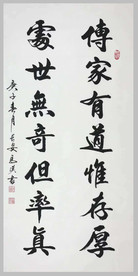 傳家有道惟存厚
處世無奇但率真
庚子春月長安